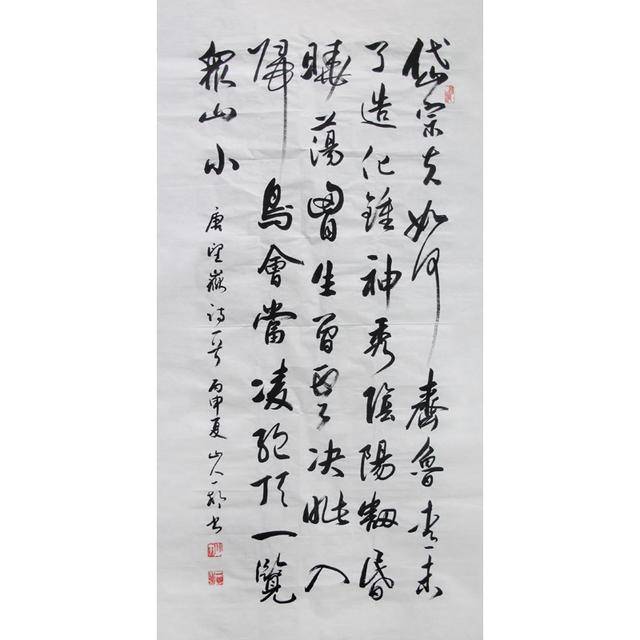 岱宗夫如何齊魯青未
了造化鍾神秀陰陽割昏
曉蕩胷生曾雲决眥入
歸鳥會當凌絕頂一覽
眾山小
唐望嶽詩一首 丙申夏 山人一書